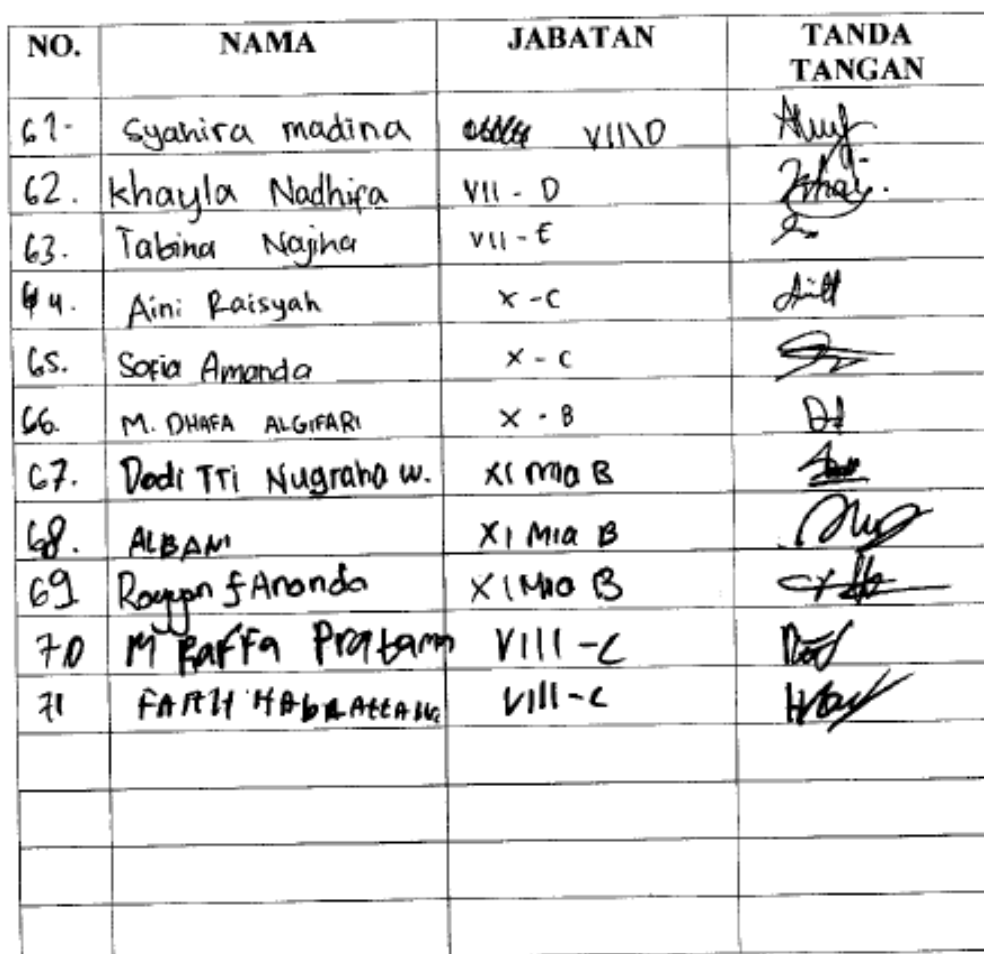 NO. NAMA JABATAN TANDA TANGAN
61. Syahira madina VIII\D
62. Khayla Nadhifa VII - D
63. Tabina Najiha VII - E
64. Aini Raisyah X - C
65. Sofia Amanda X - C
66. M. DHAFA ALGIFARI X - B
67. Dodi Tri Nugraha w. XI mia B
68. ALBANI XI Mia B
69 Rayyan f Ananda XI Mia B
70 M Raffa Pratama VIII - C
71 FATIH VIII - C